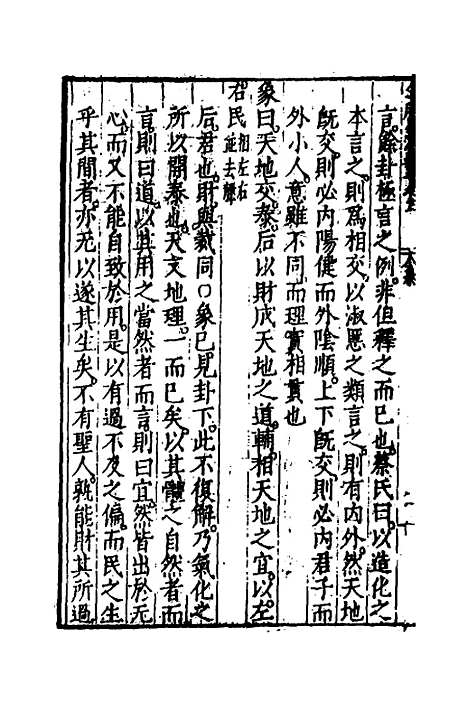 言餘卦極言之例非但釋之而已也蔡氏曰以造化之
本言之則爲相交以淑慝之類言之則有內外然天地
旣交則必內陽健而外陰順上下旣交則必內君子而
外小人意雖不同而理實相貫也
象曰天地交泰后以財成天地之道輔相天地之宜以左
右民相左右並去聲
后君也財與裁同○象已見卦下此不復解乃氣化之
所以開泰也天文地理一而已矣以其體之自然者而
言則曰道以其用之當然者而言則曰宜然皆出於无
心而又不能自致於用是以有過不及之偏而民之生
乎其間者亦无以遂其生矣不有聖人孰能財其所過